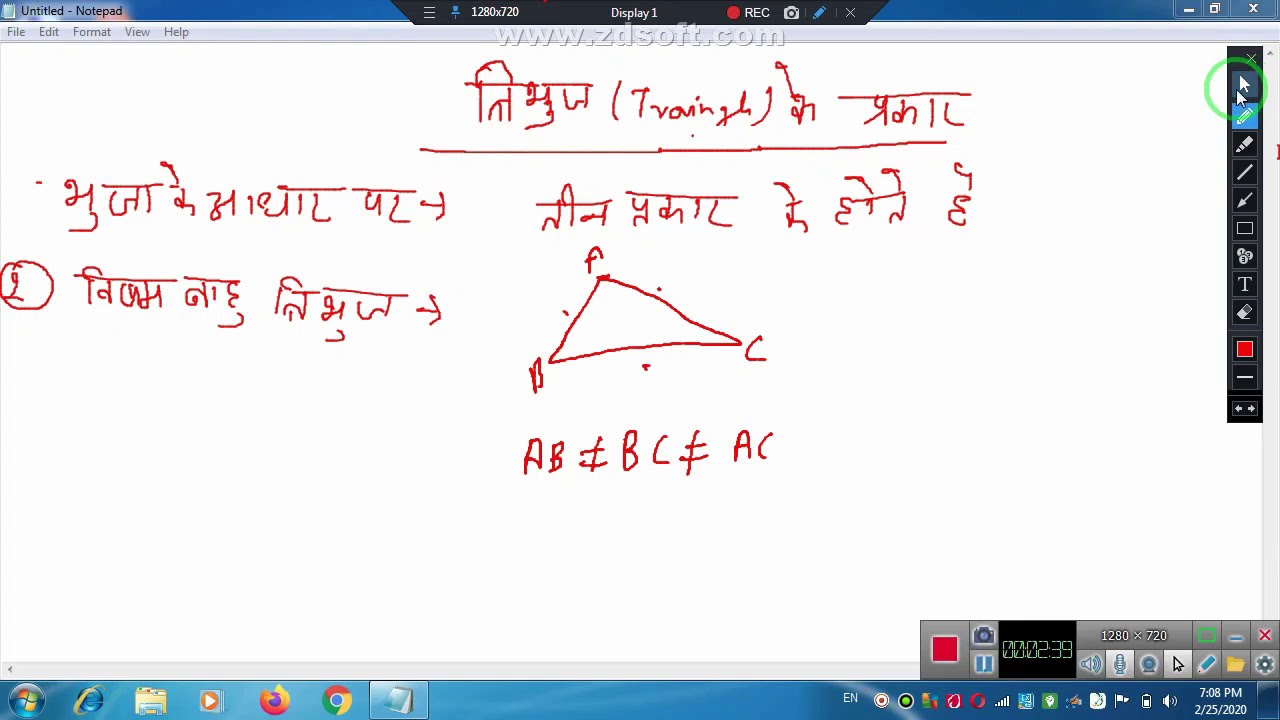 Untitled - Notepad
1280x720
Display 1
REC
File Edit Format View Help
www.zdsoft.com
त्रिभुज (Traingle) के प्रकार
भुजा के आधार पर → तीन प्रकार के होते है
1 विषम बाहु त्रिभुज →
A
B
C
AB ≠ BC ≠ AC
1280 × 720
00:02:39
EN
7:08 PM
2/25/2020